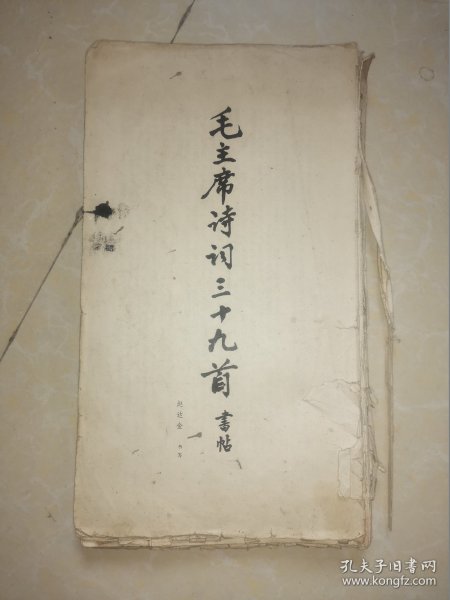 毛主席诗词三十九首 书帖
书写
孔夫子旧书网
www.kongfz.com